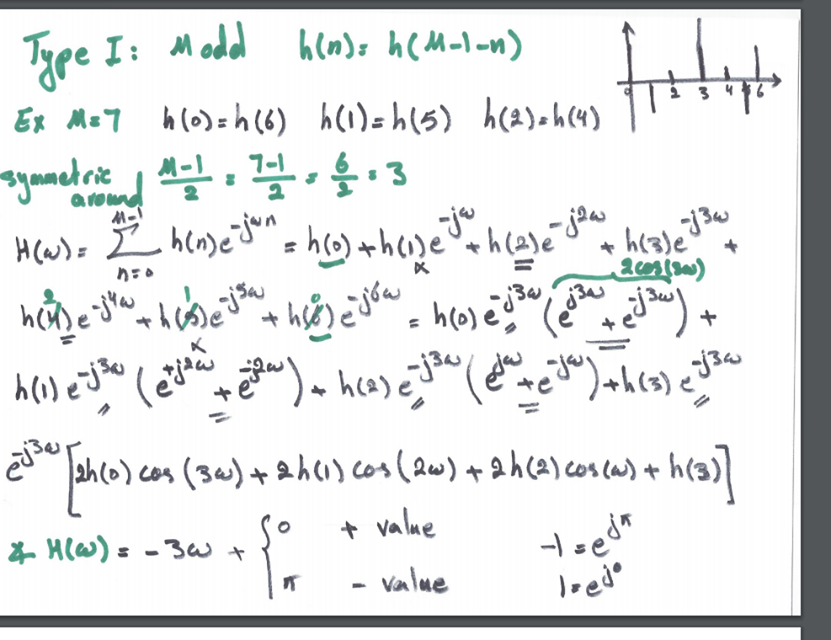 Type I: M odd h(n) = h(M-1-n)
0 2 3 4 6
Ex M=7 h(0)=h(6) h(1)=h(5) h(2)=h(4)
symmetric around (M-1)/2 = (7-1)/2 = 6/2 = 3
H(ω) = Σ_{n=0}^{M-1} h(n)e^{-jωn} = h(0) + h(1)e^{-jω} + h(2)e^{-j2ω} + h(3)e^{-j3ω} +
2 1 0 2cos(3ω)
h(4)e^{-j4ω} + h(5)e^{-j5ω} + h(6)e^{-j6ω} = h(0)e^{-j3ω}(e^{j3ω} + e^{-j3ω}) +
h(1)e^{-j3ω}(e^{+j2ω} + e^{-j2ω}) + h(2)e^{-j3ω}(e^{jω} + e^{-jω}) + h(3)e^{-j3ω}
e^{-j3ω}[2h(0)cos(3ω) + 2h(1)cos(2ω) + 2h(2)cos(ω) + h(3)]
∠H(ω) = -3ω + { 0 + value -1 = e^{jπ}
π - value 1 = e^{j0}